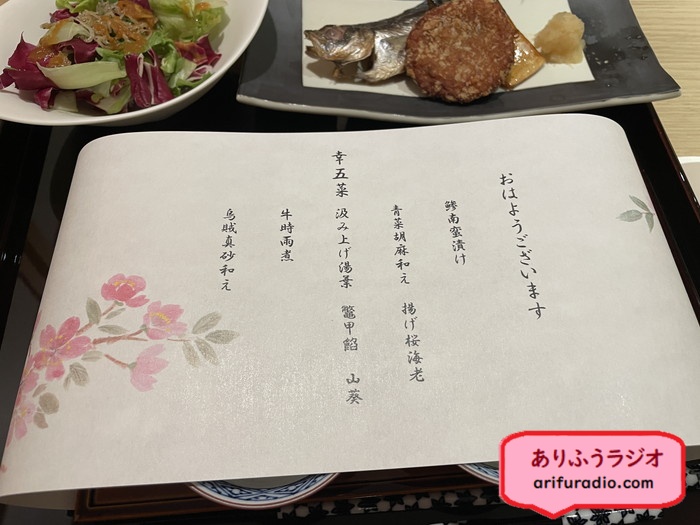 おはようございます
鯵南蛮漬け
青菜胡麻和え 揚げ桜海老
幸五菜 汲み上げ湯葉 鼈甲餡 山葵
牛時雨煮
烏賊真砂和え
ありふうラジオ
arifuradio.com